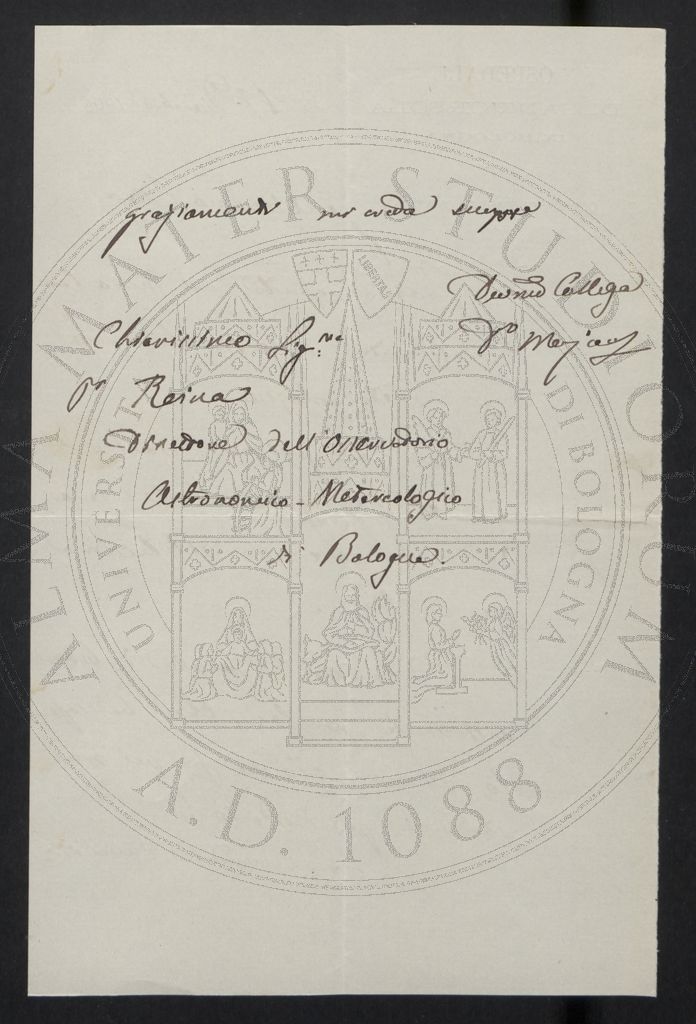 graziamenti mi creda sempre
Devmo Collega
Dr
Chiarissimo Sig.re
Pr Reina
Direttore dell'Osservatorio
Astronomico-Metereologico
di Bologna.
ALMA MATER STUDIORUM
UNIVERSITÀ DI BOLOGNA
LIBERTAS
A.D. 1088